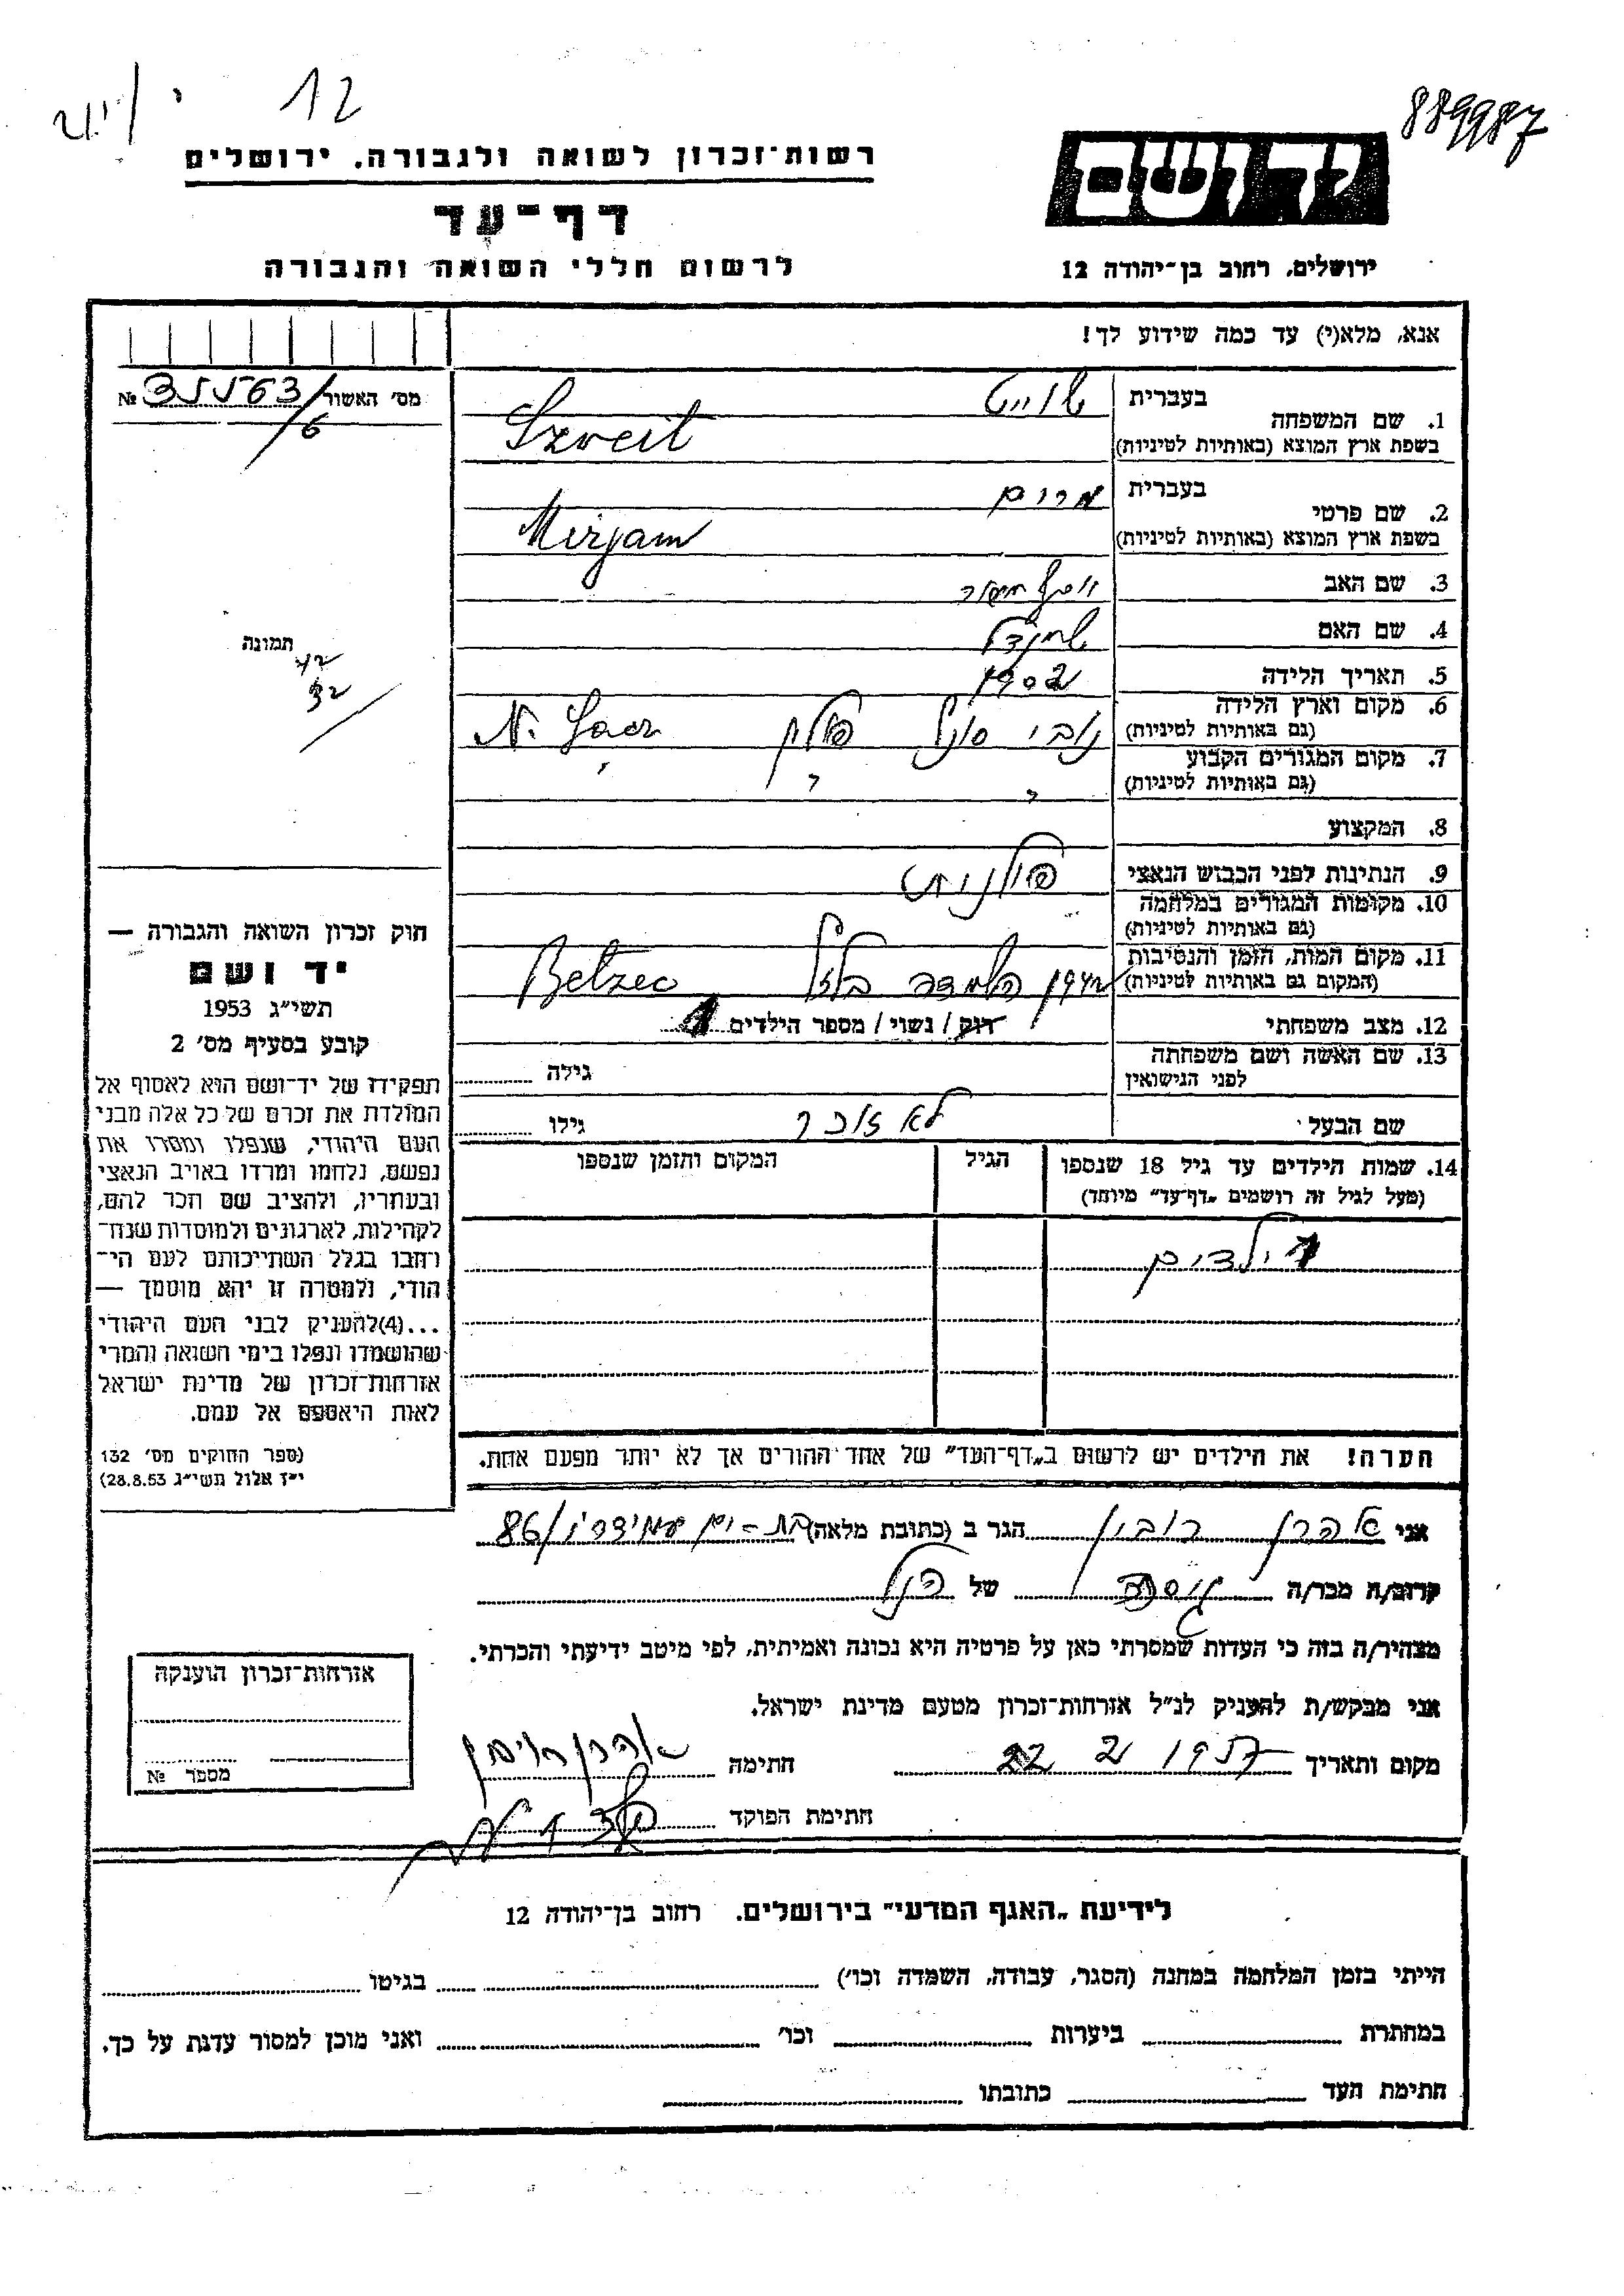 12
889987
רשות־זכרון לשואה ולגבורה, ירושלים
דף־עד
לרשום חללי השואה והגבורה
ידושם
ירושלים, רחוב בן־יהודה 12
אנא, מלא(י) עד כמה שידוע לך!
מס׳ האשור № 35563/6
1. שם המשפחה בעברית שווייט
בשפת ארץ המוצא (באותיות לטיניות) Szweit
2. שם פרטי בעברית מרים
בשפת ארץ המוצא (באותיות לטיניות) Mirjam
3. שם האב יוסף
4. שם האם שיינדל
5. תאריך הלידה 1902
6. מקום וארץ הלידה (גם באותיות לטיניות) נובי סונץ פולין N. Sącz
7. מקום המגורים הקבוע (גם באותיות לטיניות) " " "
8. המקצוע
9. הנתינות לפני הכבוש הנאצי פולנית
10. מקומות המגורים במלחמה (גם באותיות לטיניות)
11. מקום המות, הזמן והנסיבות (המקום גם באותיות לטיניות) מחנה השמדה בלזץ Betzec
12. מצב משפחתי רוק / נשוי / מספר הילדים
13. שם האשה ושם משפחתה לפני הנישואין גילה
שם הבעל לא זוכר גילו
14. שמות הילדים עד גיל 18 שנספו הגיל המקום והזמן שנספו
(מעל לגיל זה רושמים „דף־עד״ מיוחד)
ילדים
הערה! את הילדים יש לרשום ב„דף־העד״ של אחד ההורים אך לא יותר מפעם אחת.
תמונה
חוק זכרון השואה והגבורה —
יד ושם
תשי״ג 1953
קובע בסעיף מס׳ 2
תפקידו של יד־ושם הוא לאסוף אל
המולדת את זכרם של כל אלה מבני
העם היהודי, שנפלו ומסרו את
נפשם, נלחמו ומרדו באויב הנאצי
ובעוזריו, ולהציב שם וזכר להם,
לקהילות, לארגונים ולמוסדות שנח־
רבו בגלל השתייכותם לעם הי־
הודי, ולמטרה זו יהא מוסמך —
...(4)להעניק לבני העם היהודי
שהושמדו ונפלו בימי השואה והמרי
אזרחות־זכרון של מדינת ישראל
לאות היאספם אל עמם.
(ספר החוקים מס׳ 132
י״ז אלול תשי״ג 28.8.53)
אני אהרן רובין הגר ב (כתובת מלאה) בת-ים עמידר 86/
קרוב/ה מכר/ה של הנ"ל
מצהיר/ה בזה כי העדות שמסרתי כאן על פרטיה היא נכונה ואמיתית, לפי מיטב ידיעתי והכרתי.
אני מבקש/ת להעניק לנ״ל אזרחות־זכרון מטעם מדינת ישראל.
מקום ותאריך 22 2 1957 חתימה אהרן רובין
חתימת הפוקד
אזרחות־זכרון הוענקה
מספר №
לידיעת „האגף המדעי״ בירושלים. רחוב בן־יהודה 12
הייתי בזמן המלחמה במחנה (הסגר, עבודה, השמדה וכו׳) בגיטו
במחתרת ביערות וכו׳ ואני מוכן למסור עדות על כך.
חתימת העד כתובתו